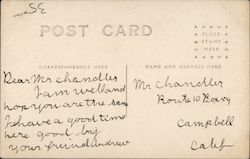 POST CARD
PLACE
STAMP
HERE
CORRESPONDENCE HERE
NAME AND ADDRESS HERE
Dear Mr chandler
I am well and
hop you are the sam
I have a good time
here good by
your freind andrew
Mr Chandler
Route 10 Box
Campbell
Calif